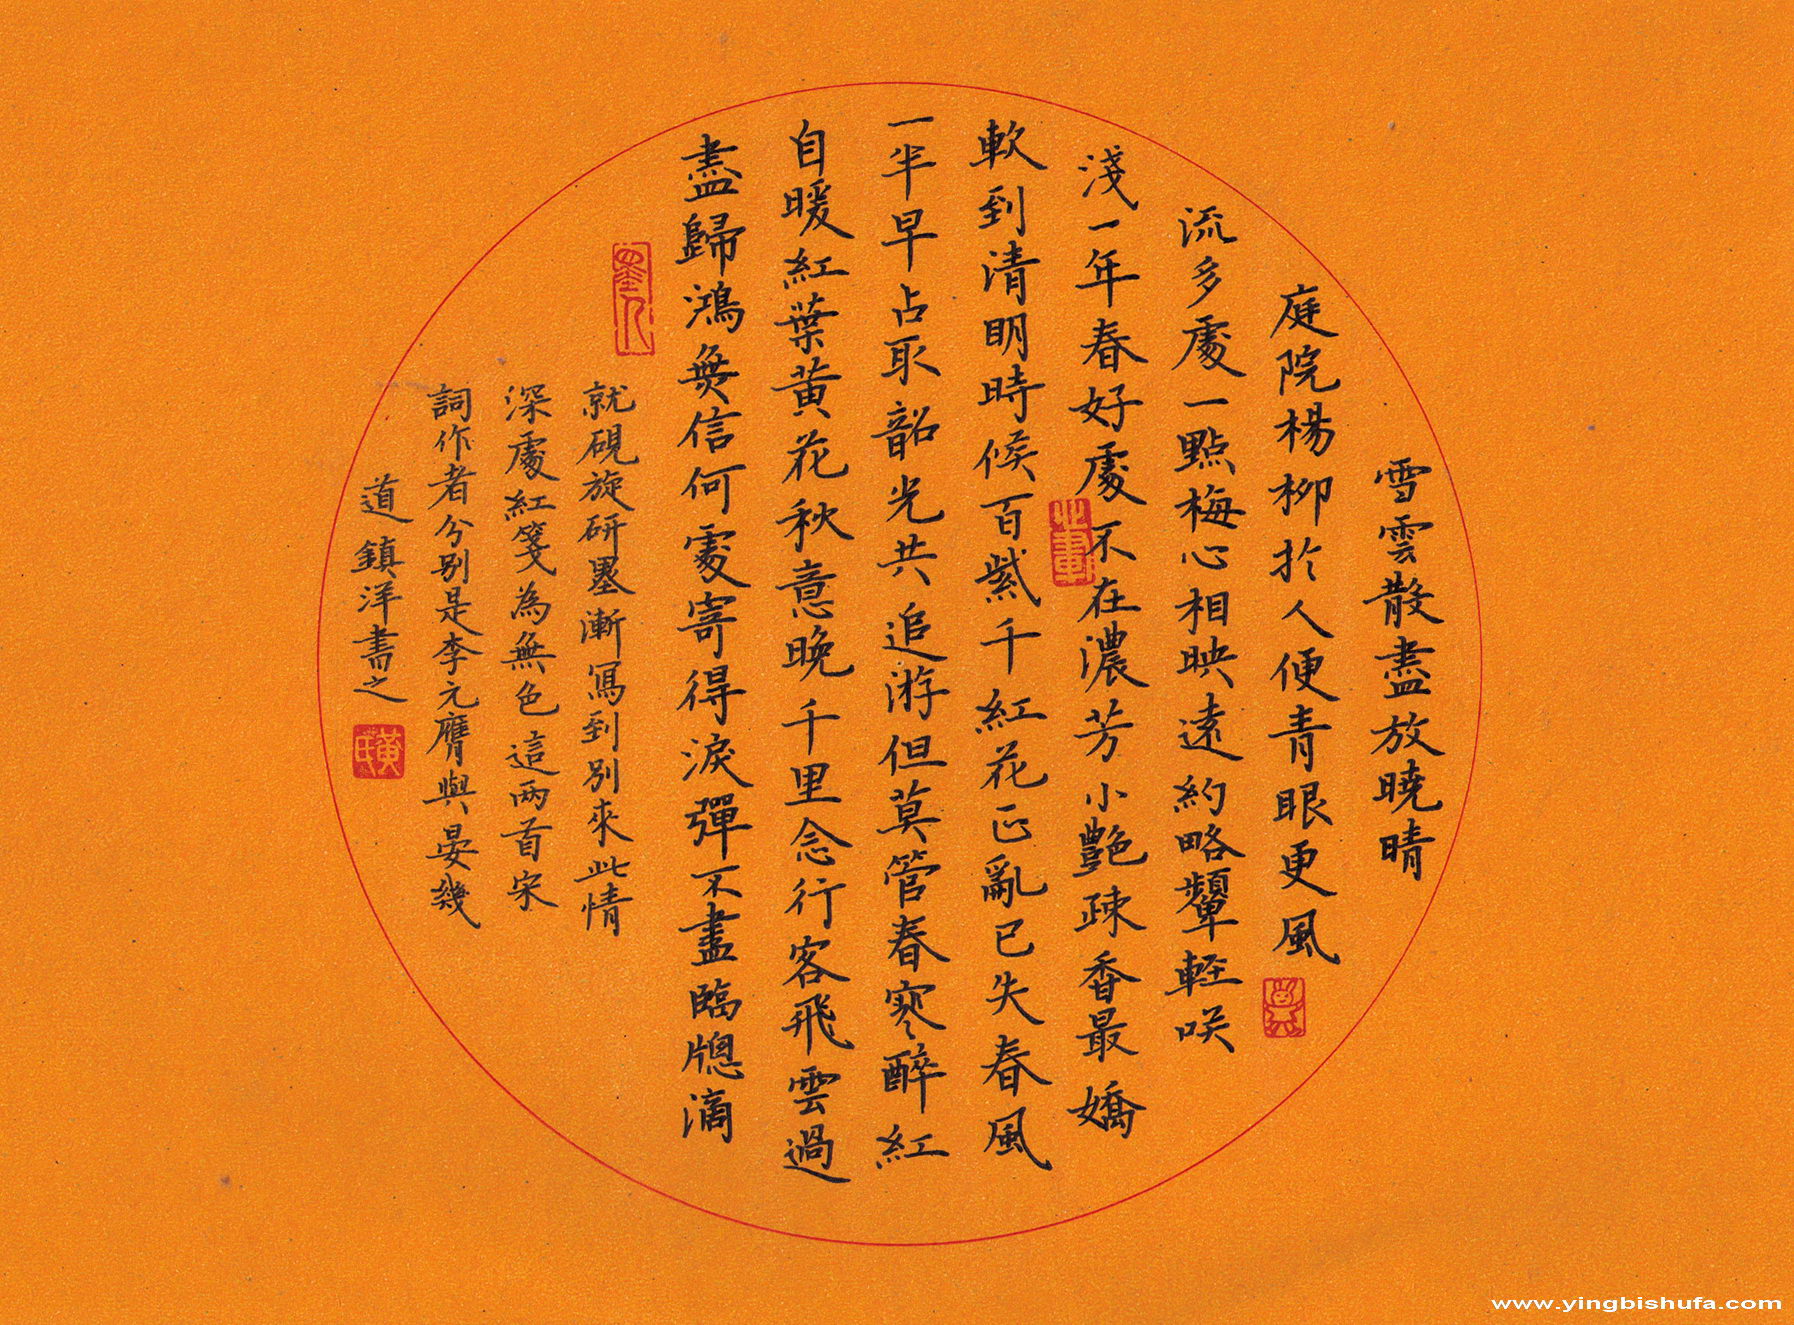 雪雲散盡放曉晴
庭院楊柳於人便青眼更風
流多處一點梅心相映遠約略顰輕咲
淺一年春好處不在濃芳小艷疎香最嬌
軟到清明時候百紫千紅花正亂已失春風
一半早占取韶光共追游但莫管春寒醉紅
自暖紅葉黄花秋意晚千里念行客飛雲過
盡歸鴻無信何處寄得淚彈不盡臨牕滴
就硯旋研墨漸寫到別來此情
深處紅箋為無色這两首宋
詞作者分別是李元膺與晏幾
道鎮洋書之
黄氏
www.yingbishufa.com